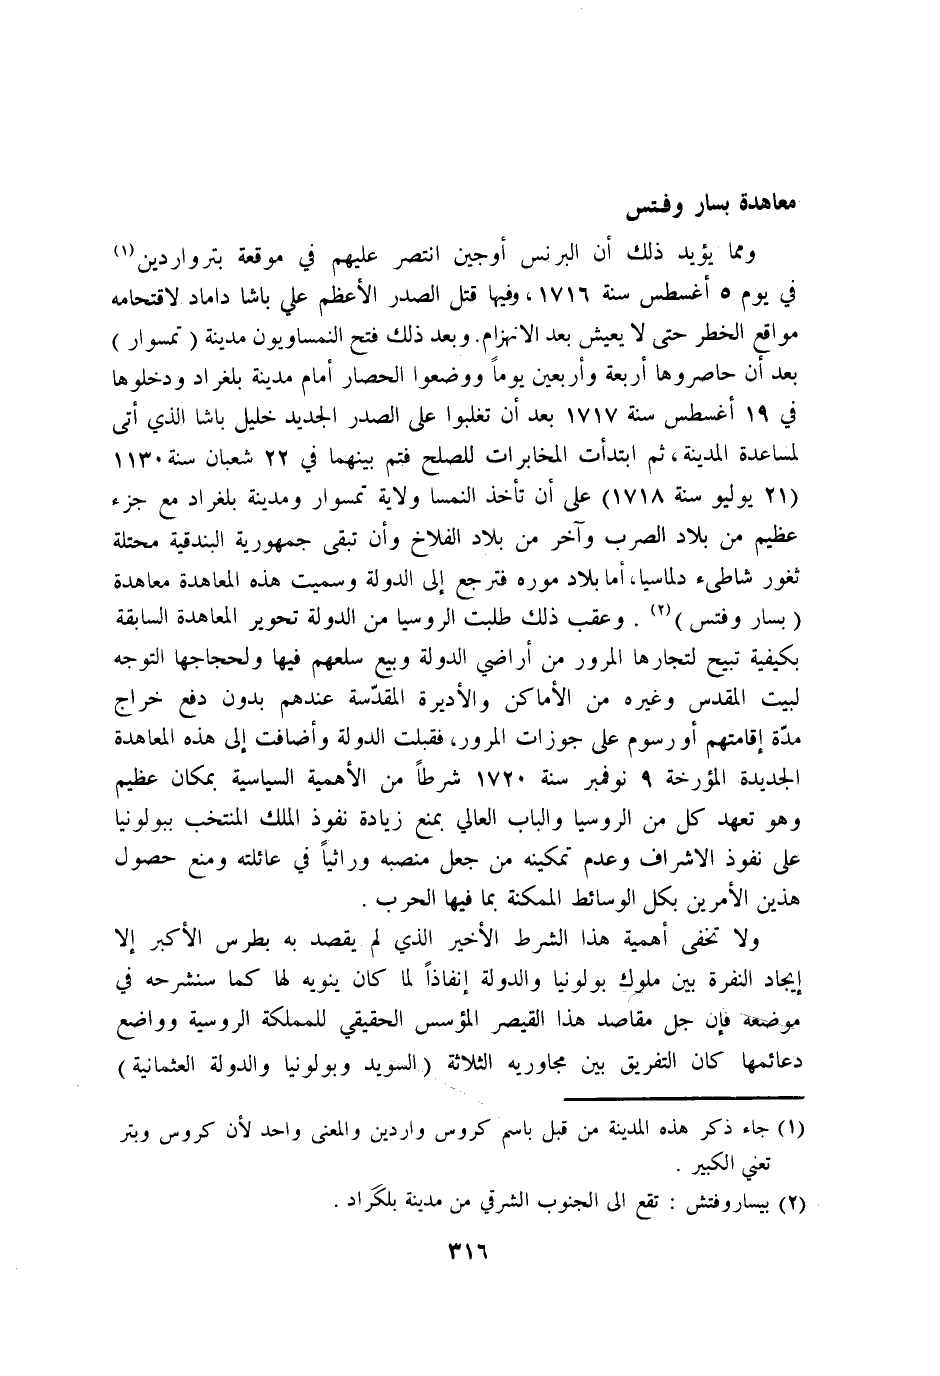 معاهدة بسار وفتس
ومما يؤيد ذلك أن البرنس أوجين انتصر عليهم في موقعة بترواردين(١)
في يوم ٥ أغسطس سنة ١٧١٦، وفيها قتل الصدر الأعظم علي باشا داماد لاقتحامه
مواقع الخطر حتى لا يعيش بعد الانهزام. وبعد ذلك فتح النمساويون مدينة (تمسوار)
بعد أن حاصروها أربعة وأربعين يوماً ووضعوا الحصار أمام مدينة بلغراد ودخلوها
في ١٩ أغسطس سنة ١٧١٧ بعد أن تغلبوا على الصدر الجديد خليل باشا الذي أتى
لمساعدة المدينة، ثم ابتدأت المخابرات للصلح فتم بينهما في ٢٢ شعبان سنة ١١٣٠
(٢١ يوليو سنة ١٧١٨) على أن تأخذ النمسا ولاية تمسوار ومدينة بلغراد مع جزء
عظيم من بلاد الصرب وآخر من بلاد الفلاخ وأن تبقى جمهورية البندقية محتلة
ثغور شاطىء دلماسيا، أما بلاد موره فترجع إلى الدولة وسميت هذه المعاهدة معاهدة
(بسار وفتس)(٢) . وعقب ذلك طلبت الروسيا من الدولة تحوير المعاهدة السابقة
بكيفية تبيح لتجارها المرور من أراضي الدولة وبيع سلعهم فيها ولحجاجها التوجه
لبيت المقدس وغيره من الأماكن والأديرة المقدّسة عندهم بدون دفع خراج
مدّة إقامتهم أو رسوم على جوزات المرور، فقبلت الدولة وأضافت إلى هذه المعاهدة
الجديدة المؤرخة ٩ نوفمبر سنة ١٧٢٠ شرطاً من الأهمية السياسية بمكان عظيم
وهو تعهد كل من الروسيا والباب العالي بمنع زيادة نفوذ الملك المنتخب ببولونيا
على نفوذ الاشراف وعدم تمكينه من جعل منصبه وراثياً في عائلته ومنع حصول
هذين الأمرين بكل الوسائط الممكنة بما فيها الحرب .
ولا تخفى أهمية هذا الشرط الأخير الذي لم يقصد به بطرس الأكبر إلا
إيجاد النفرة بين ملوك بولونيا والدولة إنفاذاً لما كان ينويه لها كما سنشرحه في
موضعه فإن جل مقاصد هذا القيصر المؤسس الحقيقي للمملكة الروسية وواضع
دعائمها كان التفريق بين مجاوريه الثلاثة (السويد وبولونيا والدولة العثمانية)
(١) جاء ذكر هذه المدينة من قبل باسم كروس واردين والمعنى واحد لأن كروس وبتر
تعني الكبير .
(٢) بيساروفتش : تقع الى الجنوب الشرقي من مدينة بلگراد .
٣١٦